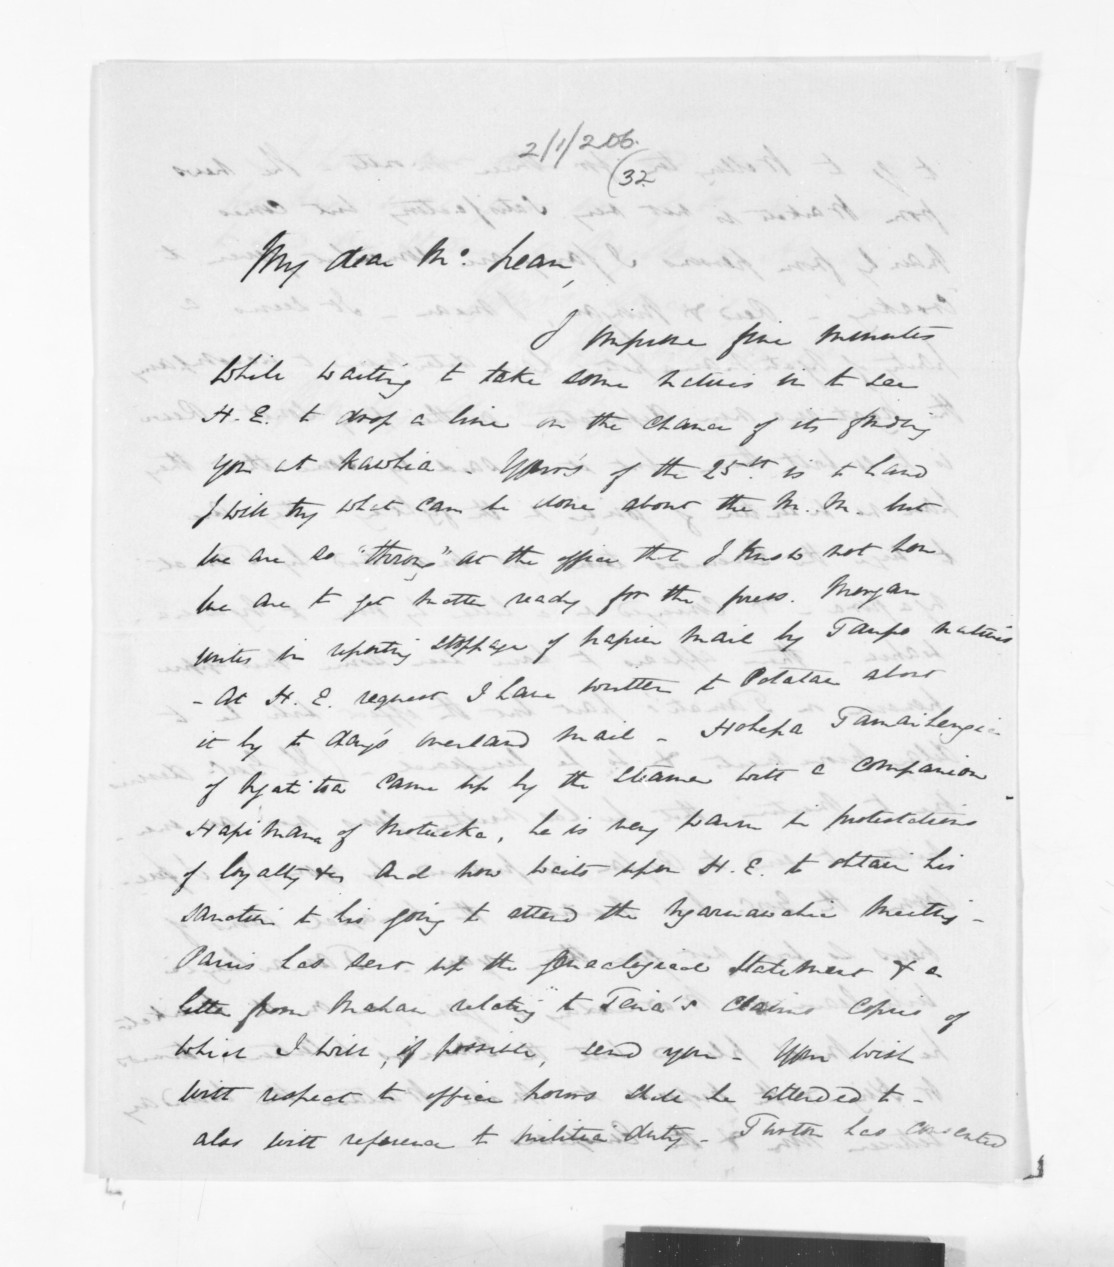 2/1/206.
(32
My dear Mc. Lean,
I improve five minutes
while waiting to take some natives in to see
H. E. to drop a line on the chance of its finding
you at Kawhia. Your's of the 25th. is to hand
I will try what can be done about the M. M. but
we are so "throng" at the office that I know not how
we are to get matter ready for the press. Morgan
writes in reporting stoppage of Napier Mail by Taupo natives
- At H. E. request I have written to Potatau about
it by to day's overland mail - Hohepa Tamaihengia
of Ngatitoa came up by the steamer with a companion
Hapimana of Motueka, he is very warm in protestations
of loyalty &c and now waits upon H. E. to obtain his
sanction to his going to attend the Ngaruawahia Meeting -
Parris has sent up the Genealogical Statement & a
letter from Mahau relating to Teira's claims copies of
which I will, if possible, send you - Your wish
with respect to office hours shall be attended to -
also with reference to militia duty - Turton has consented